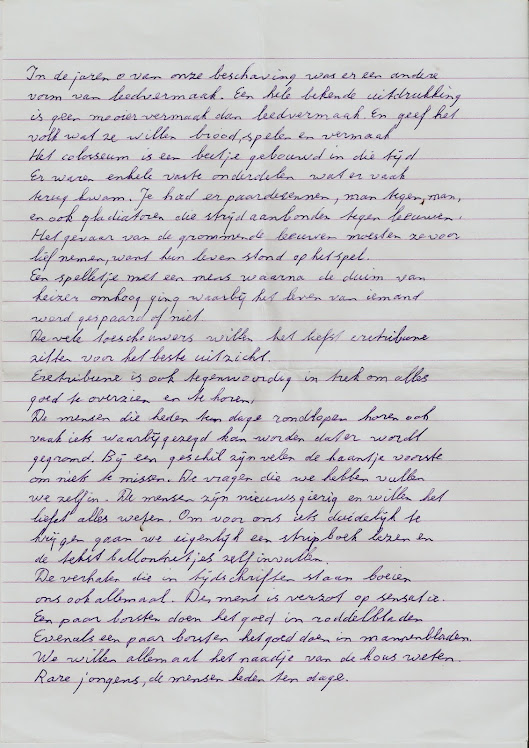 In de jaren 0 van onze beschaving was er een andere
vorm van leedvermaak. Een hele bekende uitdrukking
is geen mooier vermaak dan leedvermaak. En geef het
volk wat ze willen brood, spelen en vermaak
Het colosseum is een beetje gebouwd in die tijd
Er waren enkele vaste onderdelen wat er vaak
terug kwam. Je had er paardesennen, man tegen, man,
en ook gladiatoren die strijd aanbonden tegen leeuwen.
Het gevaar van de grommende leeuwen moesten ze voor
lief nemen, want hun leven stond op het spel.
Een spelletje met een mens waarna de duim van
keizer omhoog ging waarbij het leven van iemand
werd gespaard of niet.
De vele toeschouwers willen het liefst eretribune
zitten voor het beste uitzicht.
Eretribune is ook tegenwoordig in trek om alles
goed te overzien en te horen.
De mensen die heden ten dage rondlopen horen ook
vaak iets waarbij gezegd kan worden dat er wordt
gegromd. Bij een geschil zijn velen de haantje voorste
om niets te missen. De vragen die we hebben vullen
we zelf in. De mensen zijn nieuwsgierig en willen het
liefst alles weten. Om voor ons iets duidelijk te
krijgen gaan we eigenlijk een stripboek lezen en
de tekst ballonnetjes zelf invullen.
De verhalen die in tijdschriften staan boeien
ons ook allemaal. De mens is verzot op sensatie.
Een paar borsten doen het goed in roddelbladen
Evenals een paar borsten het goed doen in mannenbladen.
We willen allemaal het naadje van de kous weten.
Rare jongens, de mensen heden ten dage.